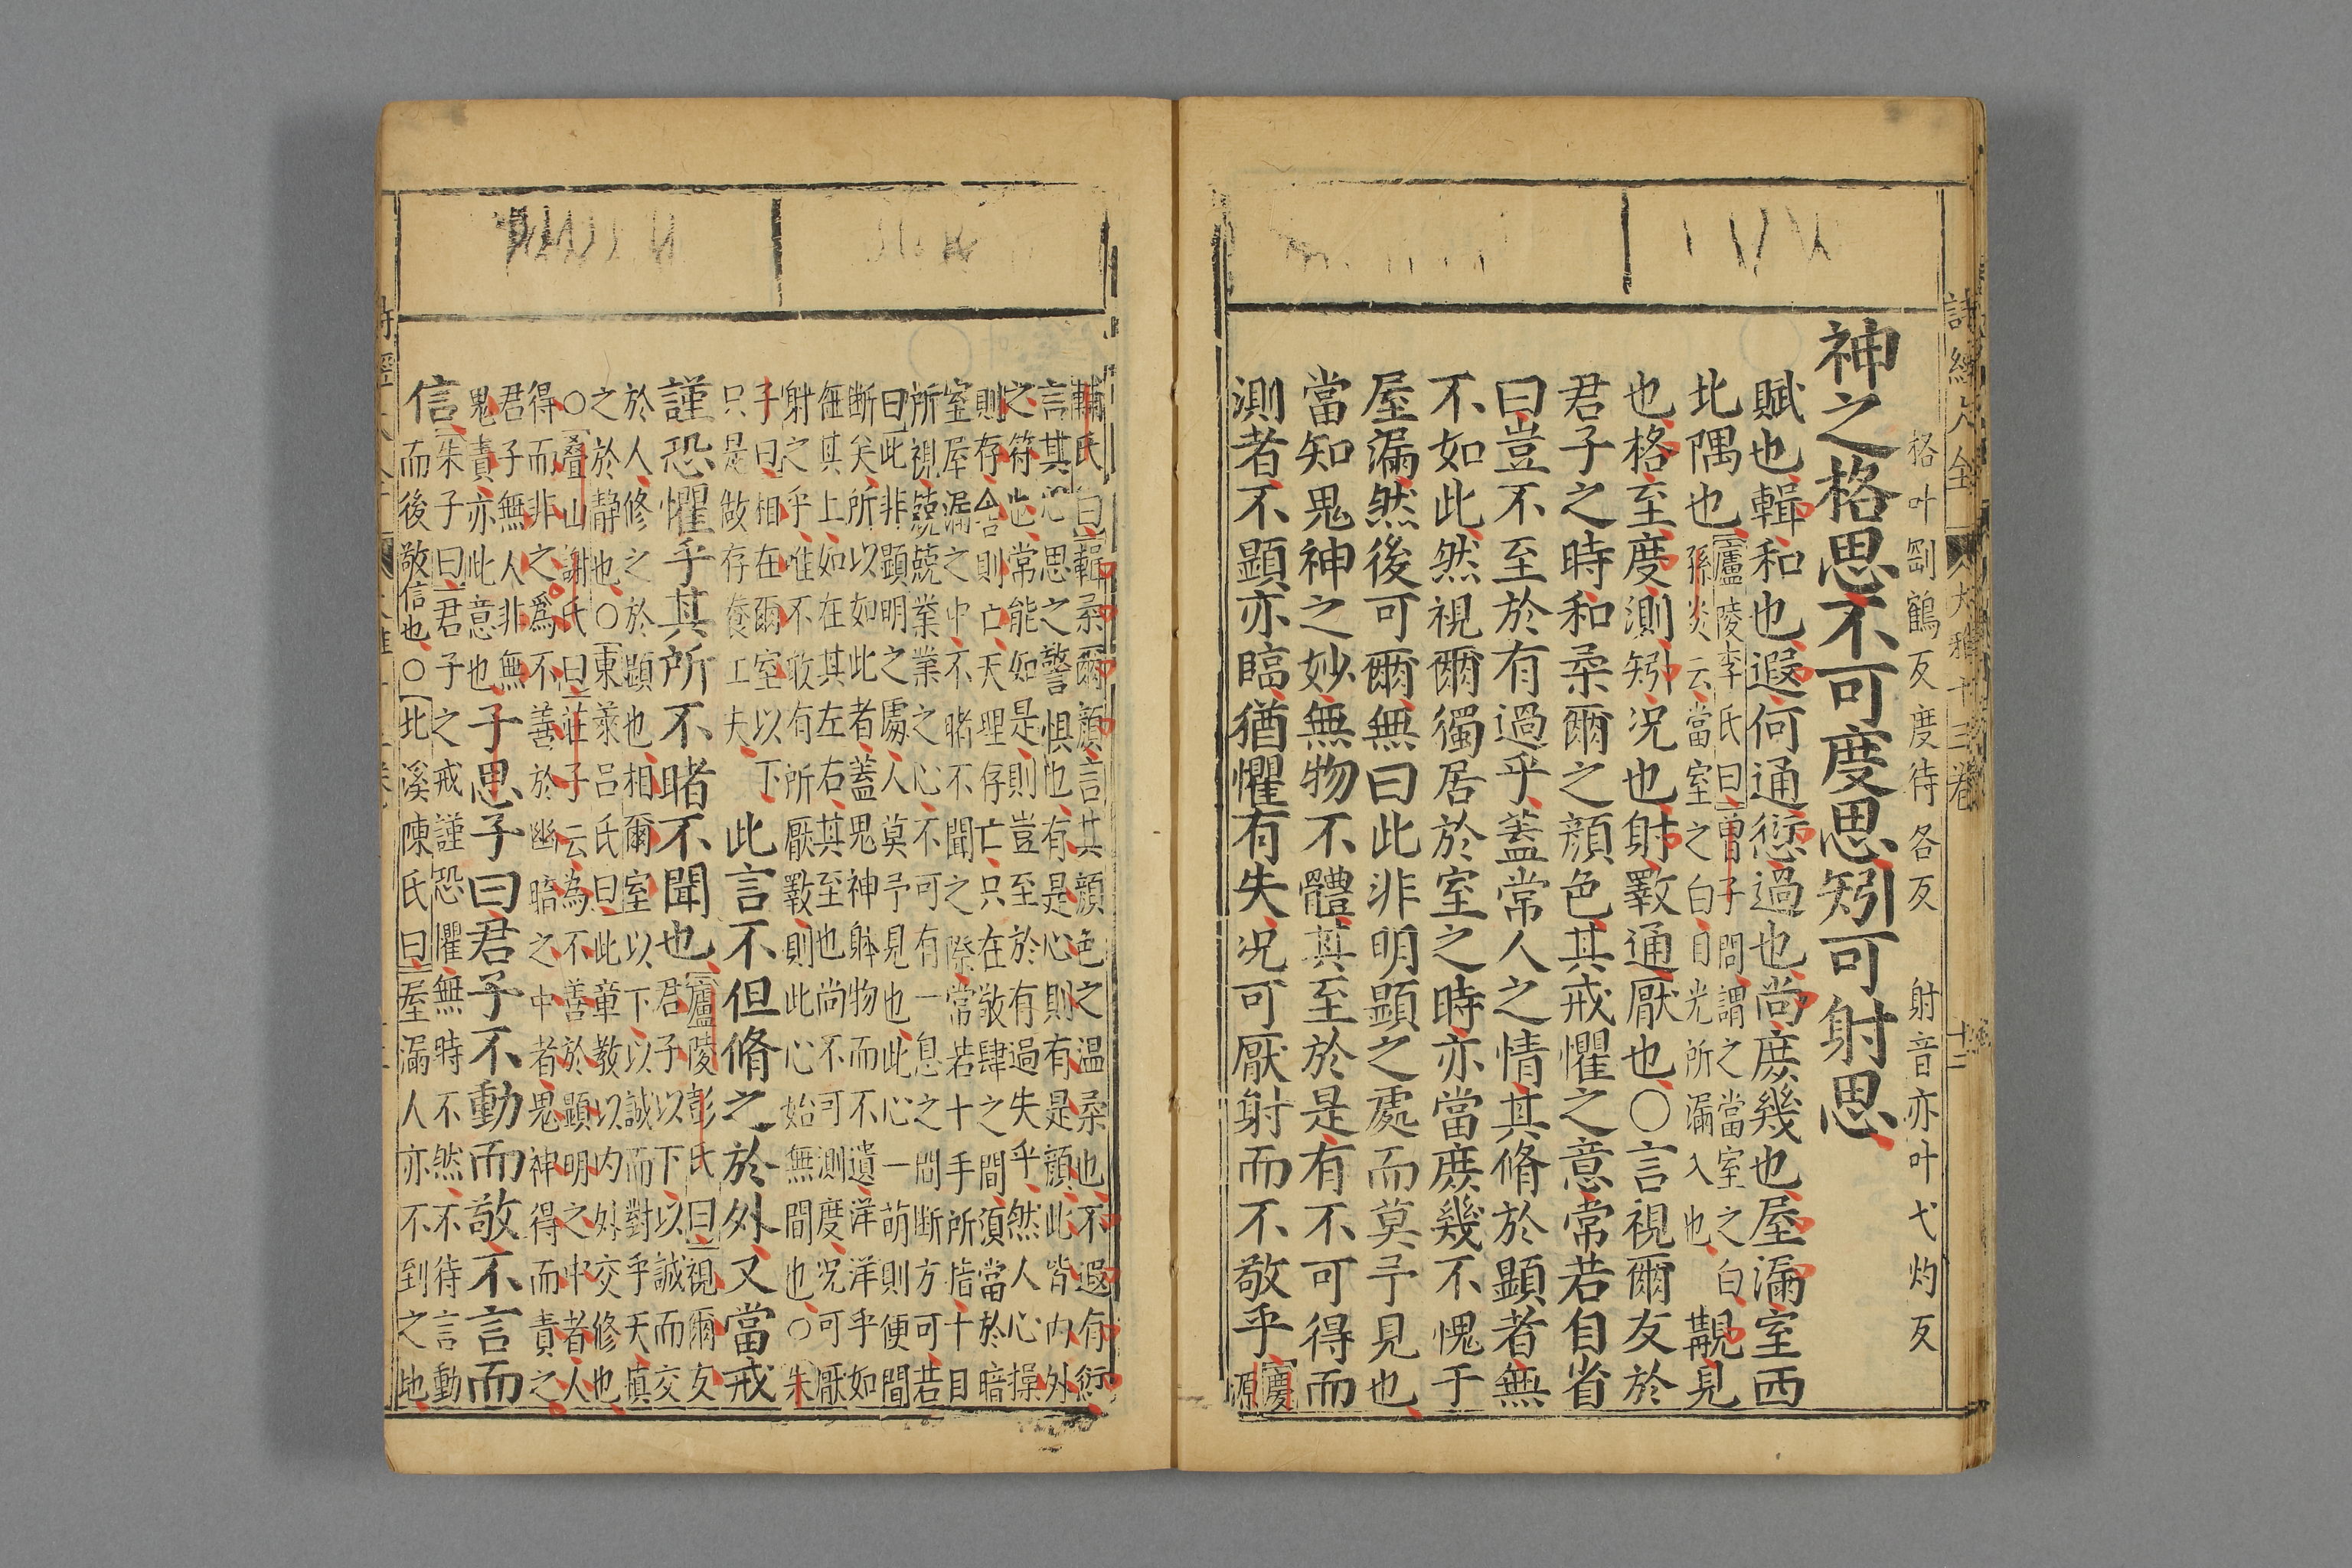 神之格思不可度思矧可射思
格叶剛鶴反度待各反 射音亦叶弋灼反
賦也輯和也遐何通愆過也尚庶幾也屋漏室西
北隅也
廬陵李氏曰曽子問謂之當室之白
孫炎云當室之白日光所漏入也
覯見
也格至度測矧况也射斁通厭也○言視爾友於
君子之時和柔爾之顔色其戒懼之意常若自省
曰豈不至於有過乎蓋常人之情其脩於顯者無
不如此然視爾獨居於室之時亦當庶幾不愧于
屋漏然後可爾無曰此非明顯之處而莫予見也
當知鬼神之妙無物不體其至於是有不可得而
測者不顯亦臨猶懼有失况可厭射而不敬乎
慶
源
輔氏曰輯柔爾顔言其顔色之温柔也不遐有衍
言其心思之警惧也有是心則有是顔此皆内外
之符也常能如是則豈至於有過失乎然人心操
則存舎則亡天理存亡只在敬肆之間須當於暗
室屋漏之中不睹不聞之際常若十手所指十目
所視兢兢業業之心不可有一息之間断方可若
曰此非顯明之處人莫予見也此心一萌則便間
断矣所以如此者蓋鬼神躰物而不遺洋洋乎如
在其上如在其左右其至也尚不可測度况可厭
射之乎惟不敢有所厭斁則此心始無間也○朱
子曰相在爾室以下
只是做存養工夫
此言不但脩之於外又當戒
謹恐懼乎其所不睹不聞也
廬陵彭氏曰視爾友
君子以下以誠而交
於人修之於顯也相爾室以下以誠而對乎天真
之於静也○東萊吕氏曰此章教以内外交修也
○叠山謝氏曰莊子云為不善於顯明之中者人
得而非之爲不善於幽暗之中者鬼神得而責之
君子無人非無
鬼責亦此意也
子思子曰君子不動而敬不言而
信
朱子曰君子之戒謹恐懼無時不然不待言動
而後敬信也○北溪陳氏曰屋漏人亦不到之地